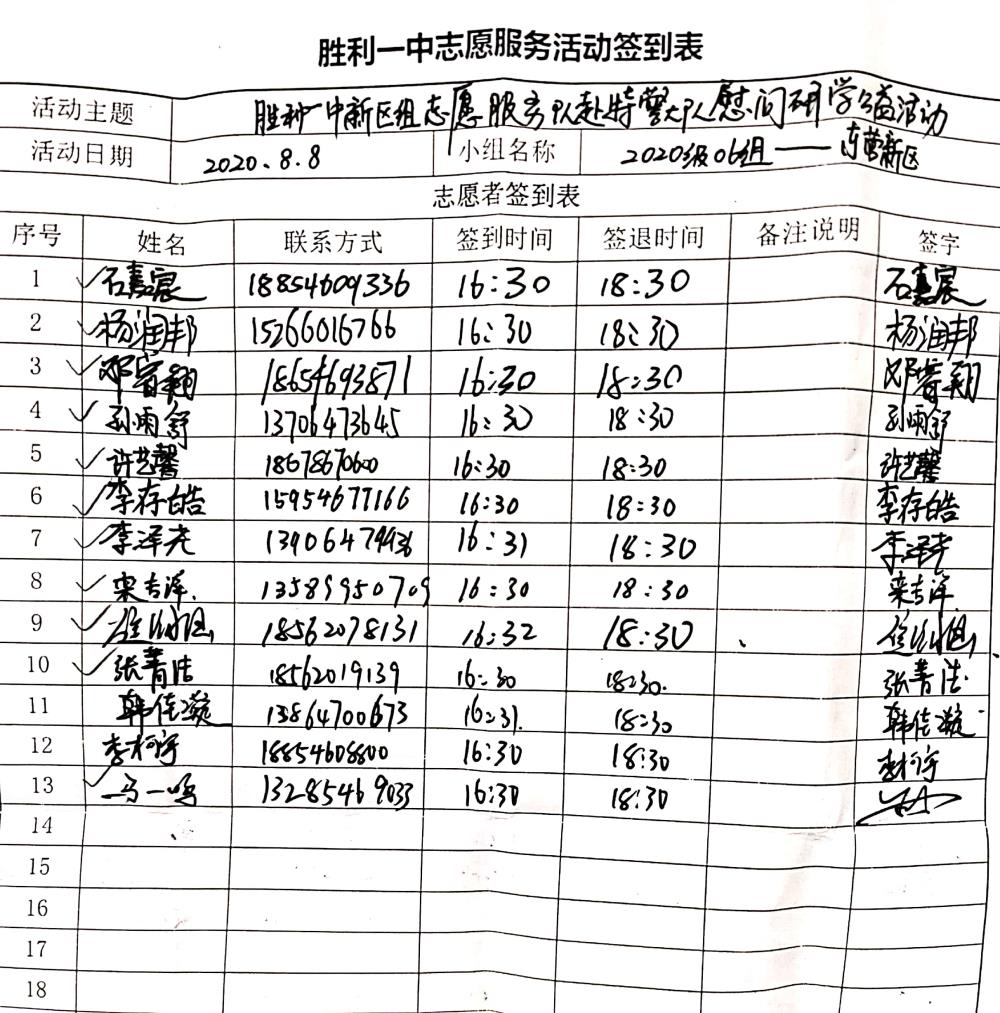 胜利一中志愿服务活动签到表
活动主题 胜利一中新区组志愿服务队赴特警大队慰问研学公益活动
活动日期 2020.8.8 小组名称 2020级06组——东营新区
志愿者签到表
序号 姓名 联系方式 签到时间 签退时间 备注说明 签字
1 石嘉宸 18854609336 16:30 18:30 石嘉宸
2 杨润邦 15266016766 16:30 18:30 杨润邦
3 邓睿翔 18654693871 16:30 18:30 邓睿翔
4 孙雨舒 13706473645 16:30 18:30 孙雨舒
5 许艺馨 18678670600 16:30 18:30 许艺馨
6 李存皓 15954677166 16:30 18:30 李存皓
7 李泽光 13906479936 16:31 18:30 李泽光
8 栾吉泽 13589950709 16:30 18:30 栾吉泽
9 18562078131 16:32 18:30
10 张菁洁 18562019139 16:30 18:30 张菁洁
11 韩佳凝 13864700673 16:31 18:30 韩佳凝
12 李柯宇 18854608800 16:30 18:30 李柯宇
13 马一鸣 13285469033 16:30 18:30
14
15
16
17
18